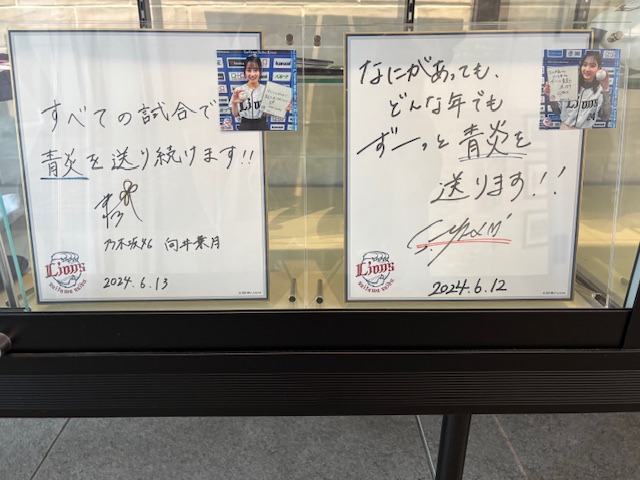 すべての試合で
青炎を送り続けます!!
乃木坂46 向井葉月
Lions
saitama seibu
2024.6.13
なにがあっても、
どんな年でも
ずーっと青炎を
送ります!!
Lions
saitama seibu
2024.6.12